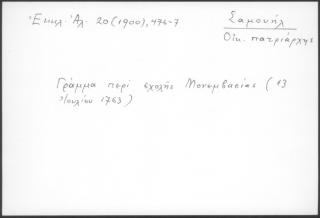 Ἐκκλ. Ἀλ. 20 (1900), 476-7
Σαμουήλ
Οἰκ. πατριάρχης
Γράμμα περὶ σχολῆς Μονεμβασίας (13
Ἰουλίου 1763)